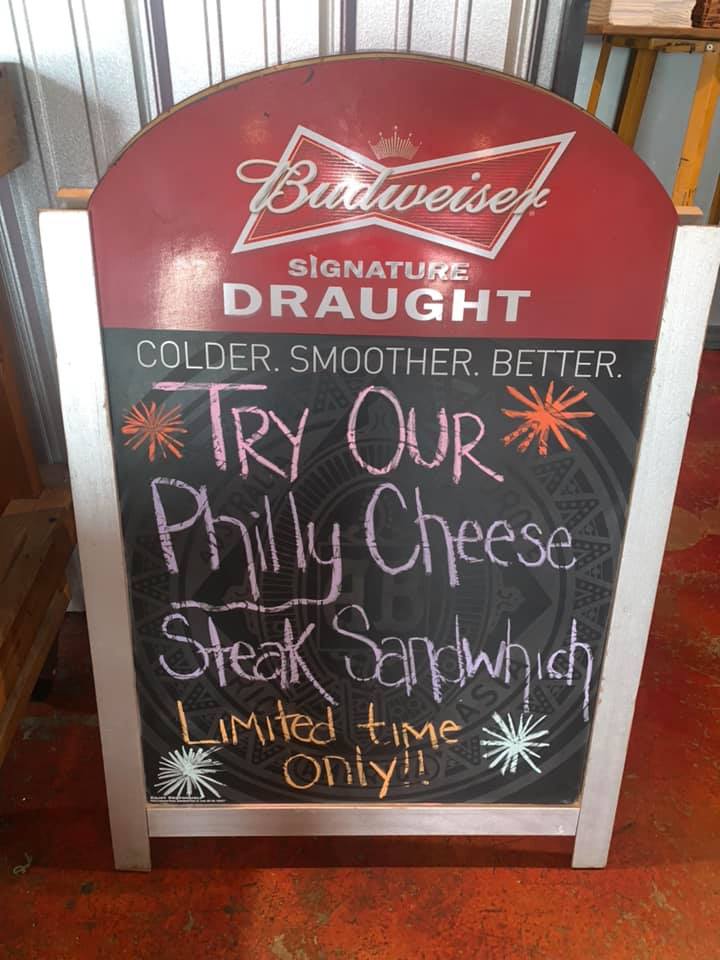 Budweiser
SIGNATURE
DRAUGHT
COLDER. SMOOTHER. BETTER.
TRY OUR
Philly Cheese
Steak Sandwhich
LIMITED time
only!!